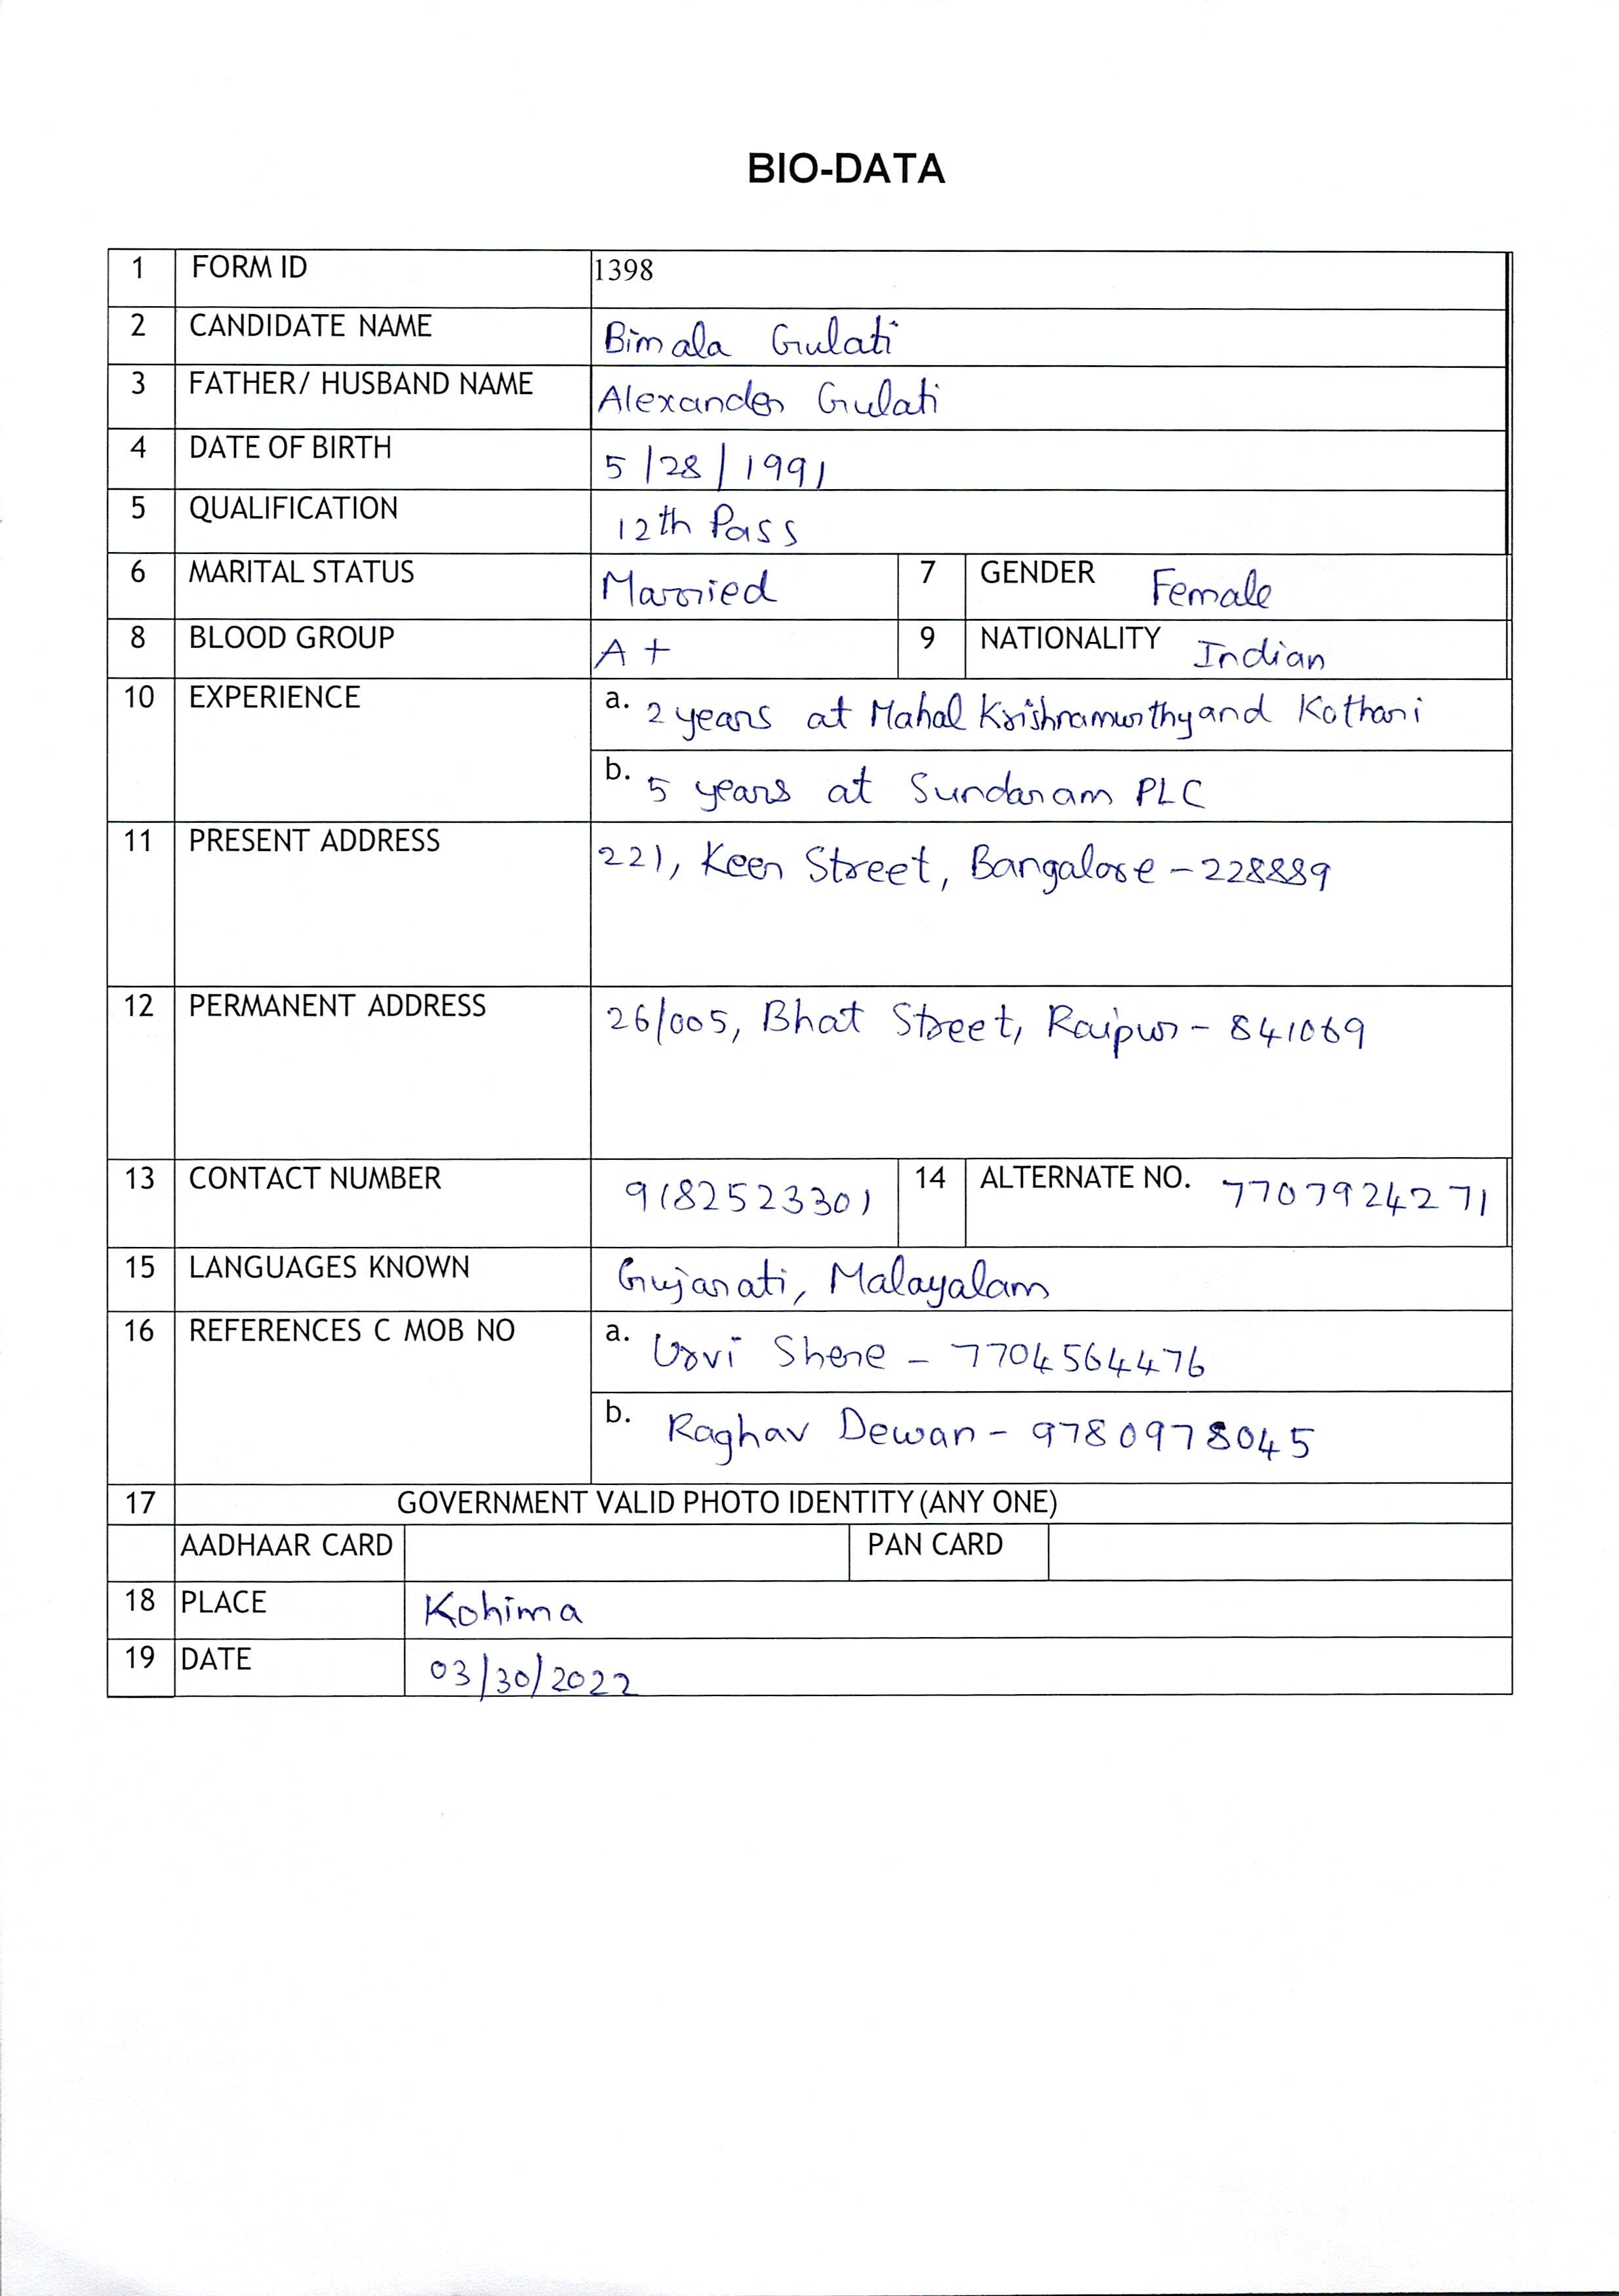 BIO-DATA
1 FORM ID 1398
2 CANDIDATE NAME Bimala Gulati
3 FATHER/ HUSBAND NAME Alexander Gulati
4 DATE OF BIRTH 5/28/1991
5 QUALIFICATION 12th Pass
6 MARITAL STATUS Married 7 GENDER Female
8 BLOOD GROUP A+ 9 NATIONALITY Indian
10 EXPERIENCE a. 2 years at Mahal Krishnamurthy and Kothari
b. 5 years at Sundaram PLC
11 PRESENT ADDRESS 221, Keer Street, Bangalore - 228889
12 PERMANENT ADDRESS 26/005, Bhat Street, Raipur - 841069
13 CONTACT NUMBER 9182523301 14 ALTERNATE NO. 7707924271
15 LANGUAGES KNOWN Gujarati, Malayalam
16 REFERENCES C MOB NO a. Urvi Shere - 7704564476
b. Raghav Dewan - 9780978045
17 GOVERNMENT VALID PHOTO IDENTITY (ANY ONE)
AADHAAR CARD PAN CARD
18 PLACE Kohima
19 DATE 03/30/2022